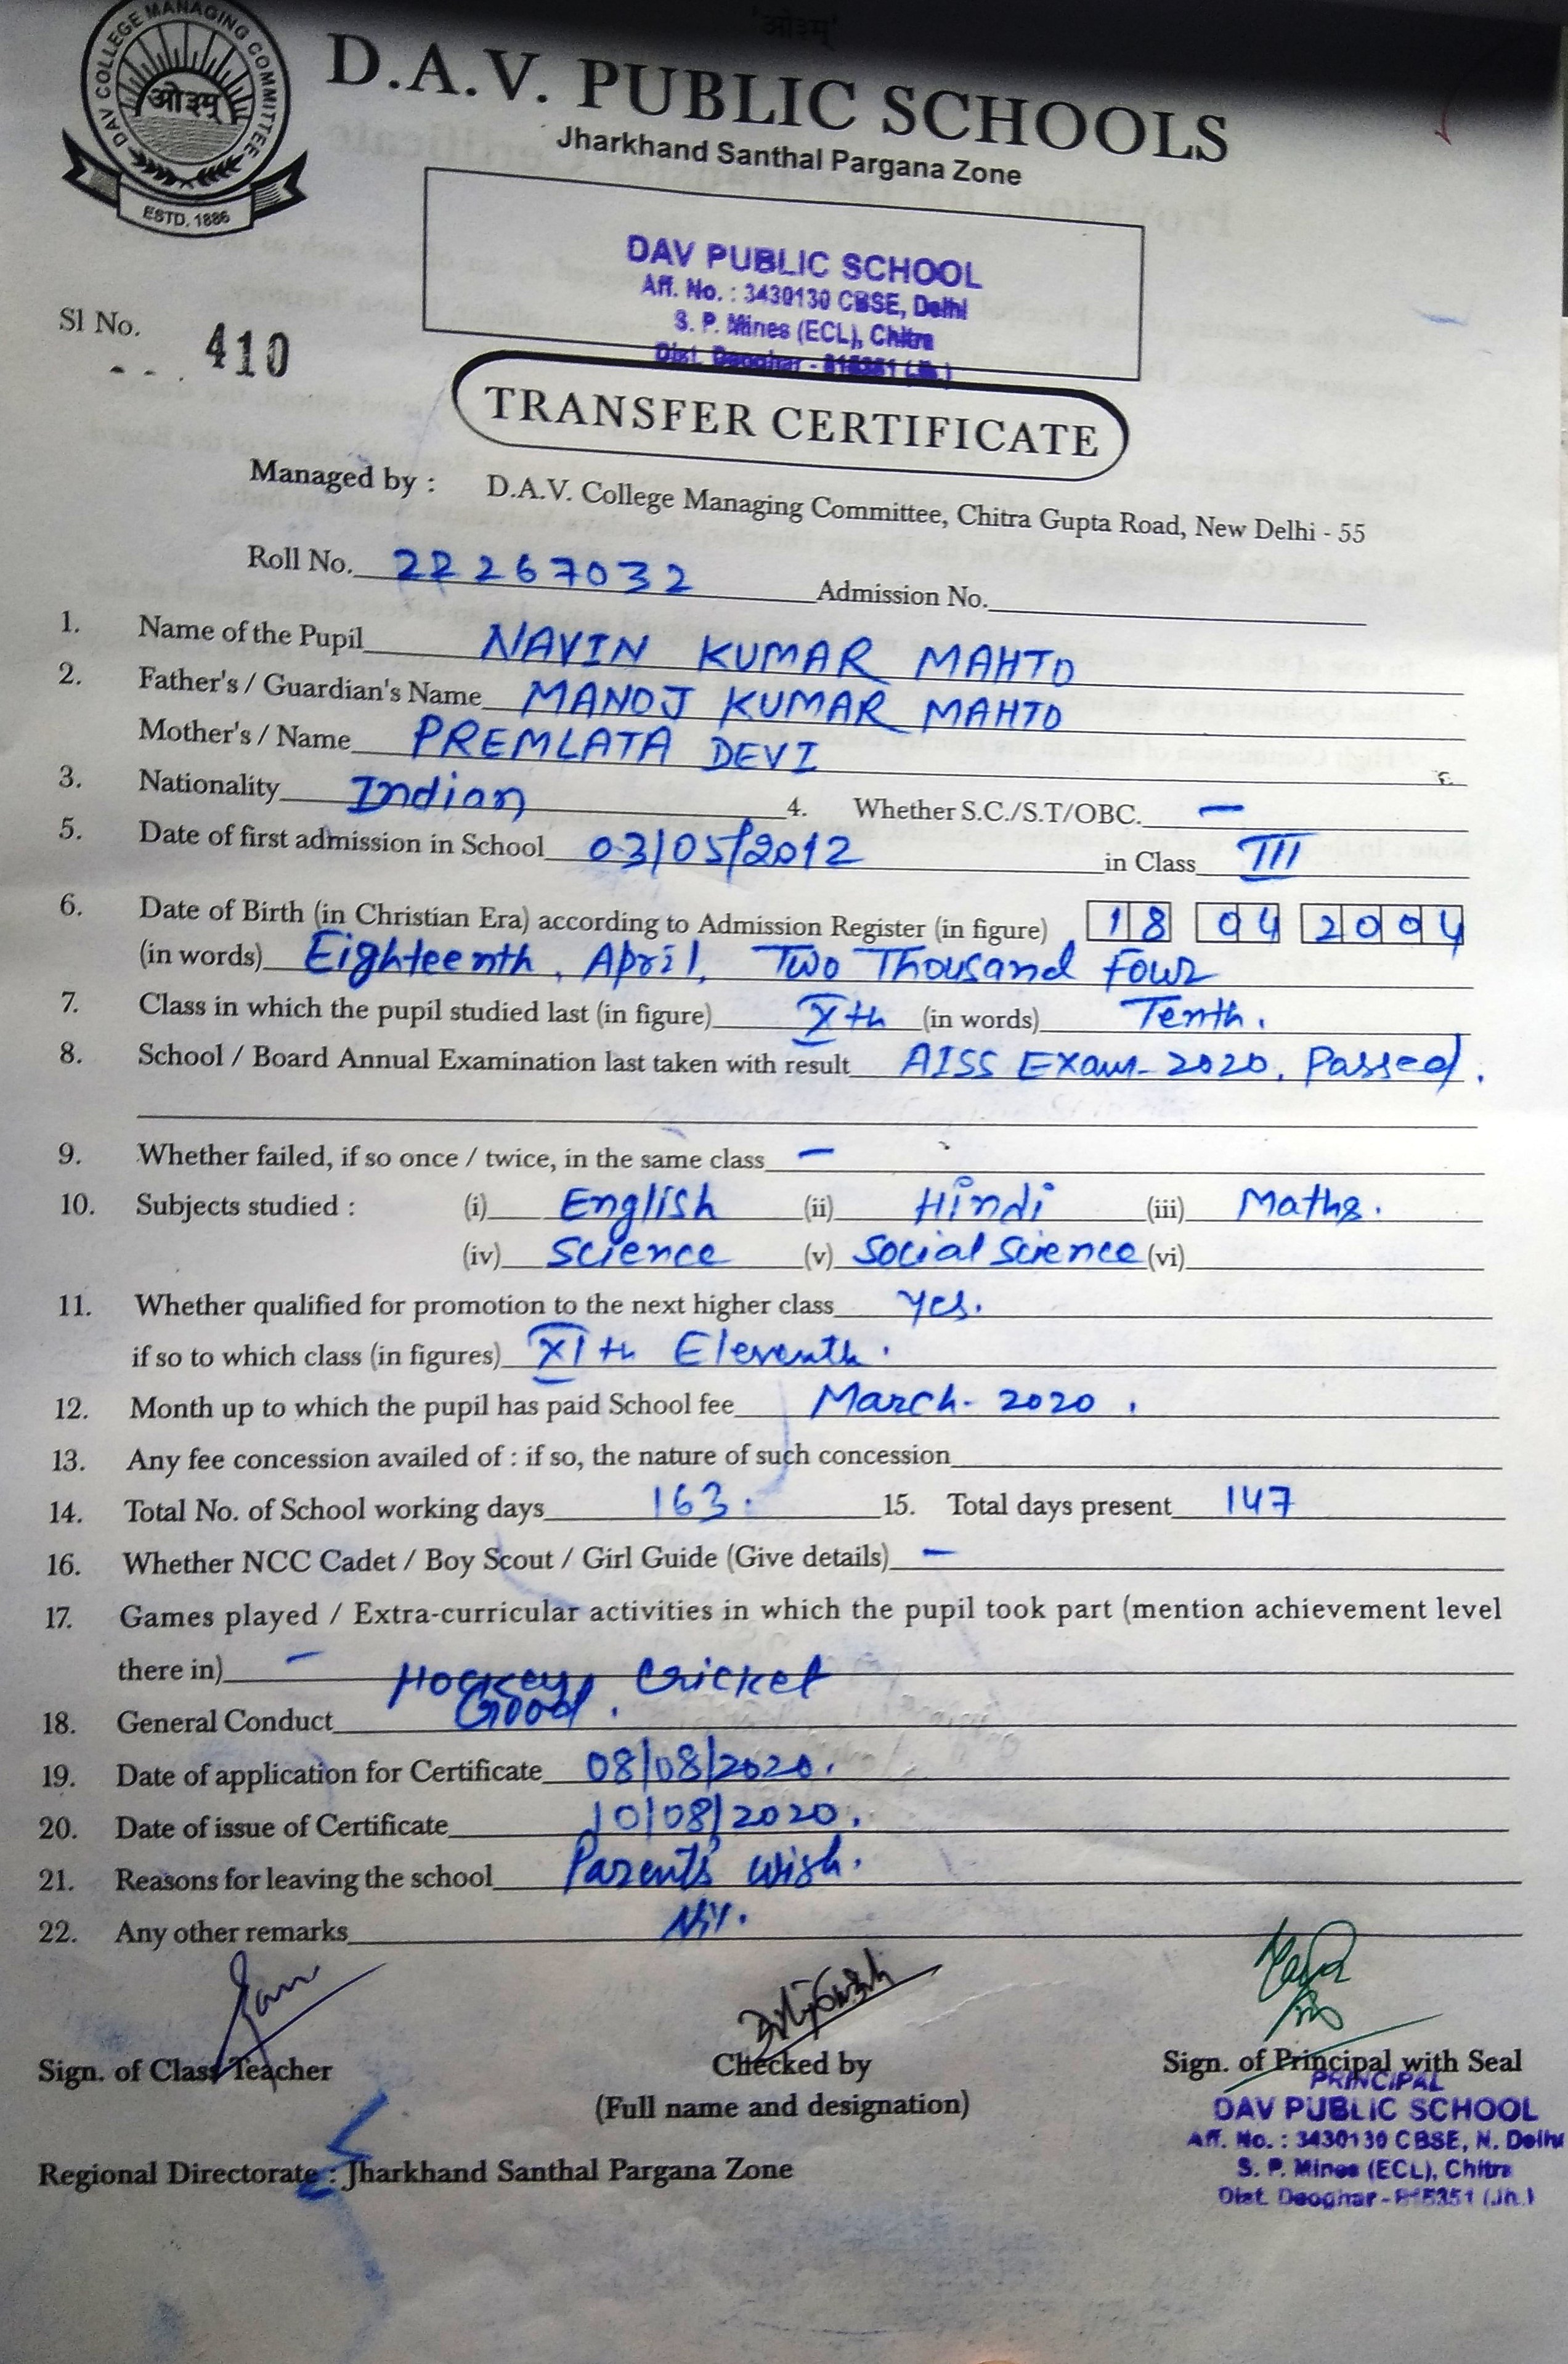 'ओ३म्'
D.A.V. PUBLIC SCHOOLS
Jharkhand Santhal Pargana Zone
DAV COLLEGE MANAGING COMMITTEE
ओ३म्
ESTD. 1886
DAV PUBLIC SCHOOL
Aff. No. : 3430130 CBSE, Delhi
S. P. Mines (ECL), Chitra
Dist. Deoghar - 815351 (Jh.)
Sl No. 410
TRANSFER CERTIFICATE
Managed by : D.A.V. College Managing Committee, Chitra Gupta Road, New Delhi - 55
Roll No. 22267032 Admission No.
1. Name of the Pupil NAVIN KUMAR MAHTO
2. Father's / Guardian's Name MANOJ KUMAR MAHTO
Mother's / Name PREMLATA DEVI
3. Nationality Indian 4. Whether S.C./S.T/OBC. —
5. Date of first admission in School 03/05/2012 in Class III
6. Date of Birth (in Christian Era) according to Admission Register (in figure) 18 04 2004
(in words) Eighteenth, April, Two Thousand Four
7. Class in which the pupil studied last (in figure) Xth (in words) Tenth.
8. School / Board Annual Examination last taken with result AISS Exam- 2020, Passed.
9. Whether failed, if so once / twice, in the same class —
10. Subjects studied : (i) English (ii) Hindi (iii) Maths.
(iv) Science (v) Social Science (vi)
11. Whether qualified for promotion to the next higher class yes.
if so to which class (in figures) XIth Eleventh.
12. Month up to which the pupil has paid School fee March- 2020.
13. Any fee concession availed of : if so, the nature of such concession
14. Total No. of School working days 163. 15. Total days present 147
16. Whether NCC Cadet / Boy Scout / Girl Guide (Give details) —
17. Games played / Extra-curricular activities in which the pupil took part (mention achievement level
there in) — Hockey, Cricket
18. General Conduct Good.
19. Date of application for Certificate 08/08/2020.
20. Date of issue of Certificate 10/08/2020.
21. Reasons for leaving the school Parents' wish.
22. Any other remarks Nil.
Sign. of Class Teacher Checked by Sign. of Principal with Seal
(Full name and designation)
PRINCIPAL
DAV PUBLIC SCHOOL
Aff. No. : 3430130 CBSE, N. Delhi
S. P. Mines (ECL), Chitra
Dist. Deoghar - 815351 (Jh.)
Regional Directorate : Jharkhand Santhal Pargana Zone